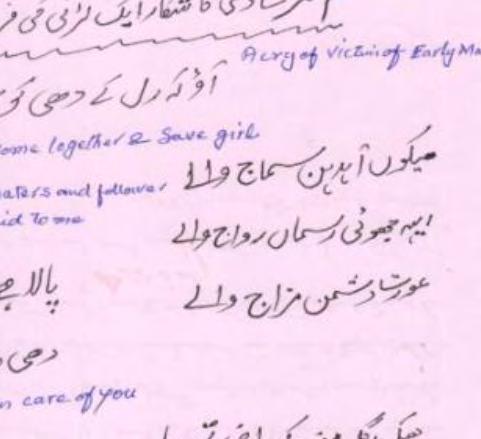 کا شکار ایک لڑکی کی
A cry of victim of Early Ma
آؤ کہ رل کے دھی
ome together & Save girl
میکوں آہدن سماج والے
aters and follower
ایہہ جھوٹی رسماں رواج والے
id to me
عورت دشمن مزاج والے
پالا ہے
دھی
n care of you